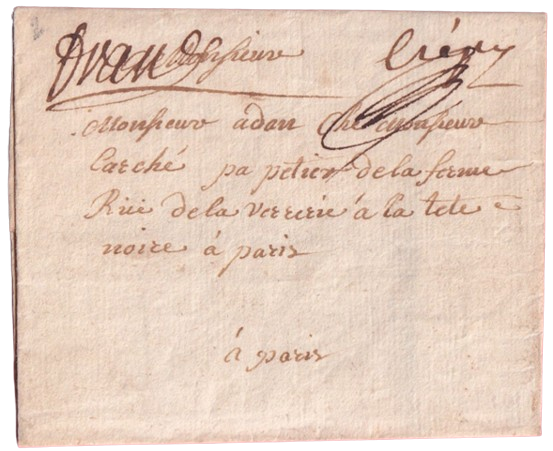 franc Monsieur Crépy
Monsieur adan Che Monsieur
Carché pa petier de la ferme
Rüe de la verrerie à la tete
noire à paris
à paris